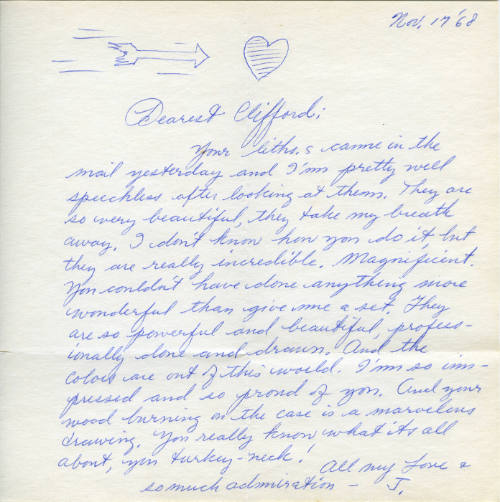 Nov. 17 '68
Dearest Clifford:
Your liths.s came in the
mail yesterday and I'm pretty well
speechless after looking at them. They are
so very beautiful, they take my breath
away. I don't know how you do it, but
they are really incredible. Magnificent.
You couldn't have done anything more
wonderful than give me a set. They
are so powerful and beautiful, profess-
ionally done and drawn. And the
colors are out of this world. I'm so im-
pressed and so proud of you. And your
wood burning on the case is a marvelous
drawing. You really know what its all
about, you turkey-neck!
All my Love &
so much admiration - J.